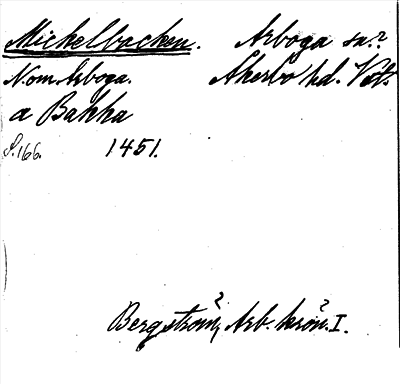 Michelbacken. Arboga sn?
Nom. Arboga. Åkerbo hd. Vstm.
a Bakka
S. 166. 1451.
Bergström, Arb. krön. I.